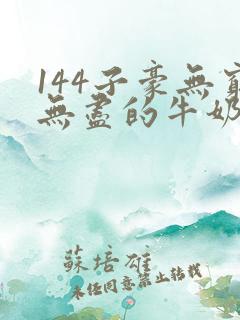 144子豪無窮
無盡的牛奶
蘇培雄
未經同意禁止轉載